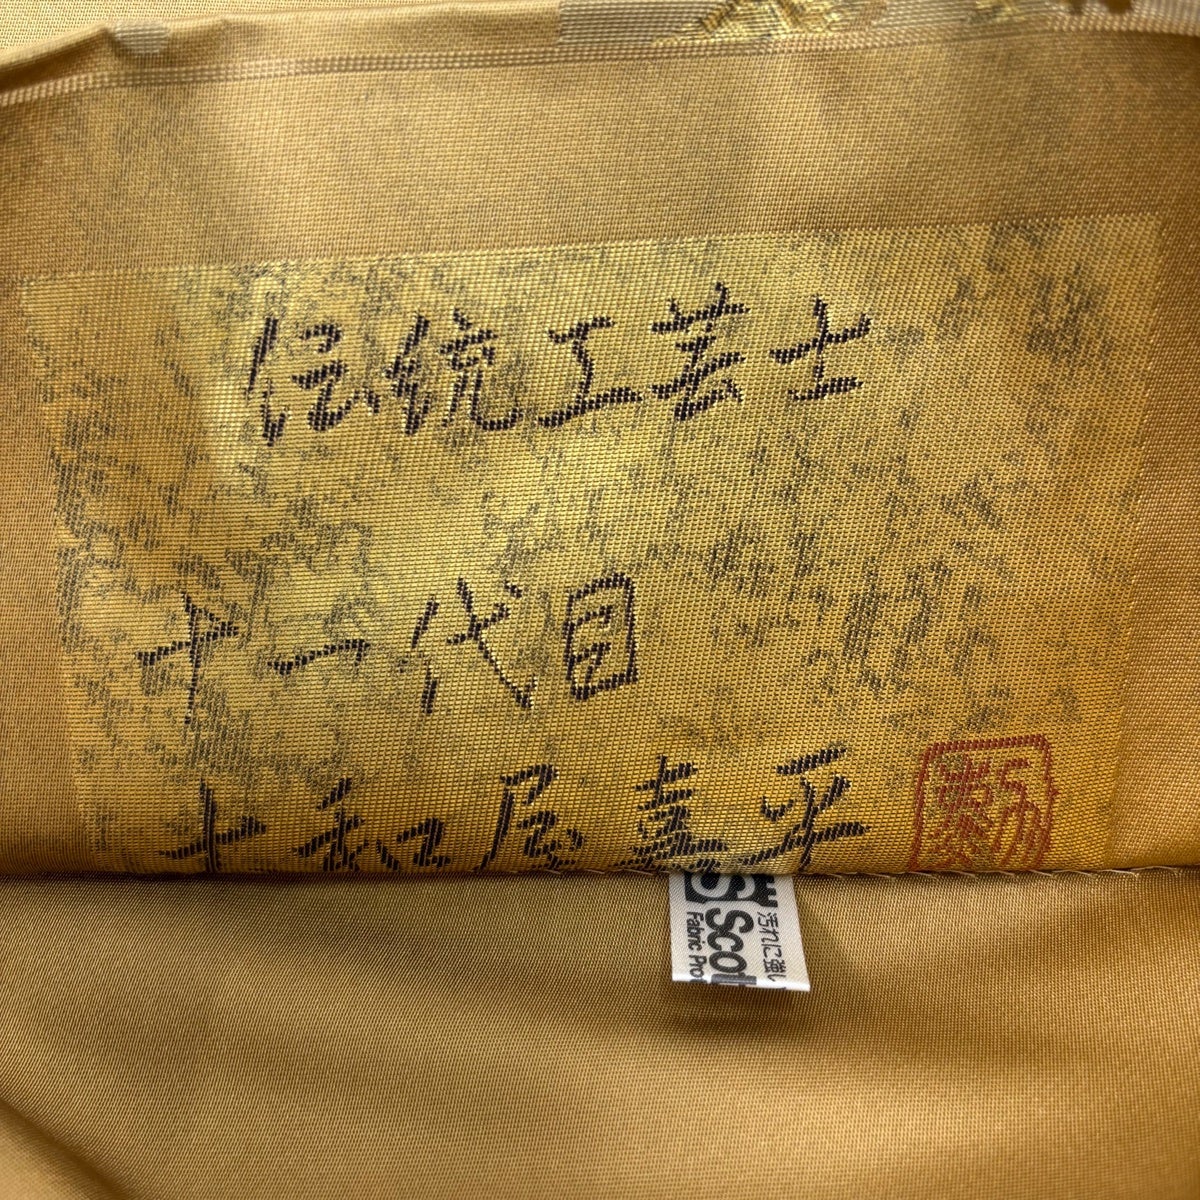 伝統工芸士
十一代目
十和屋嘉平
汚れに強い
Scot
Fabric Pro